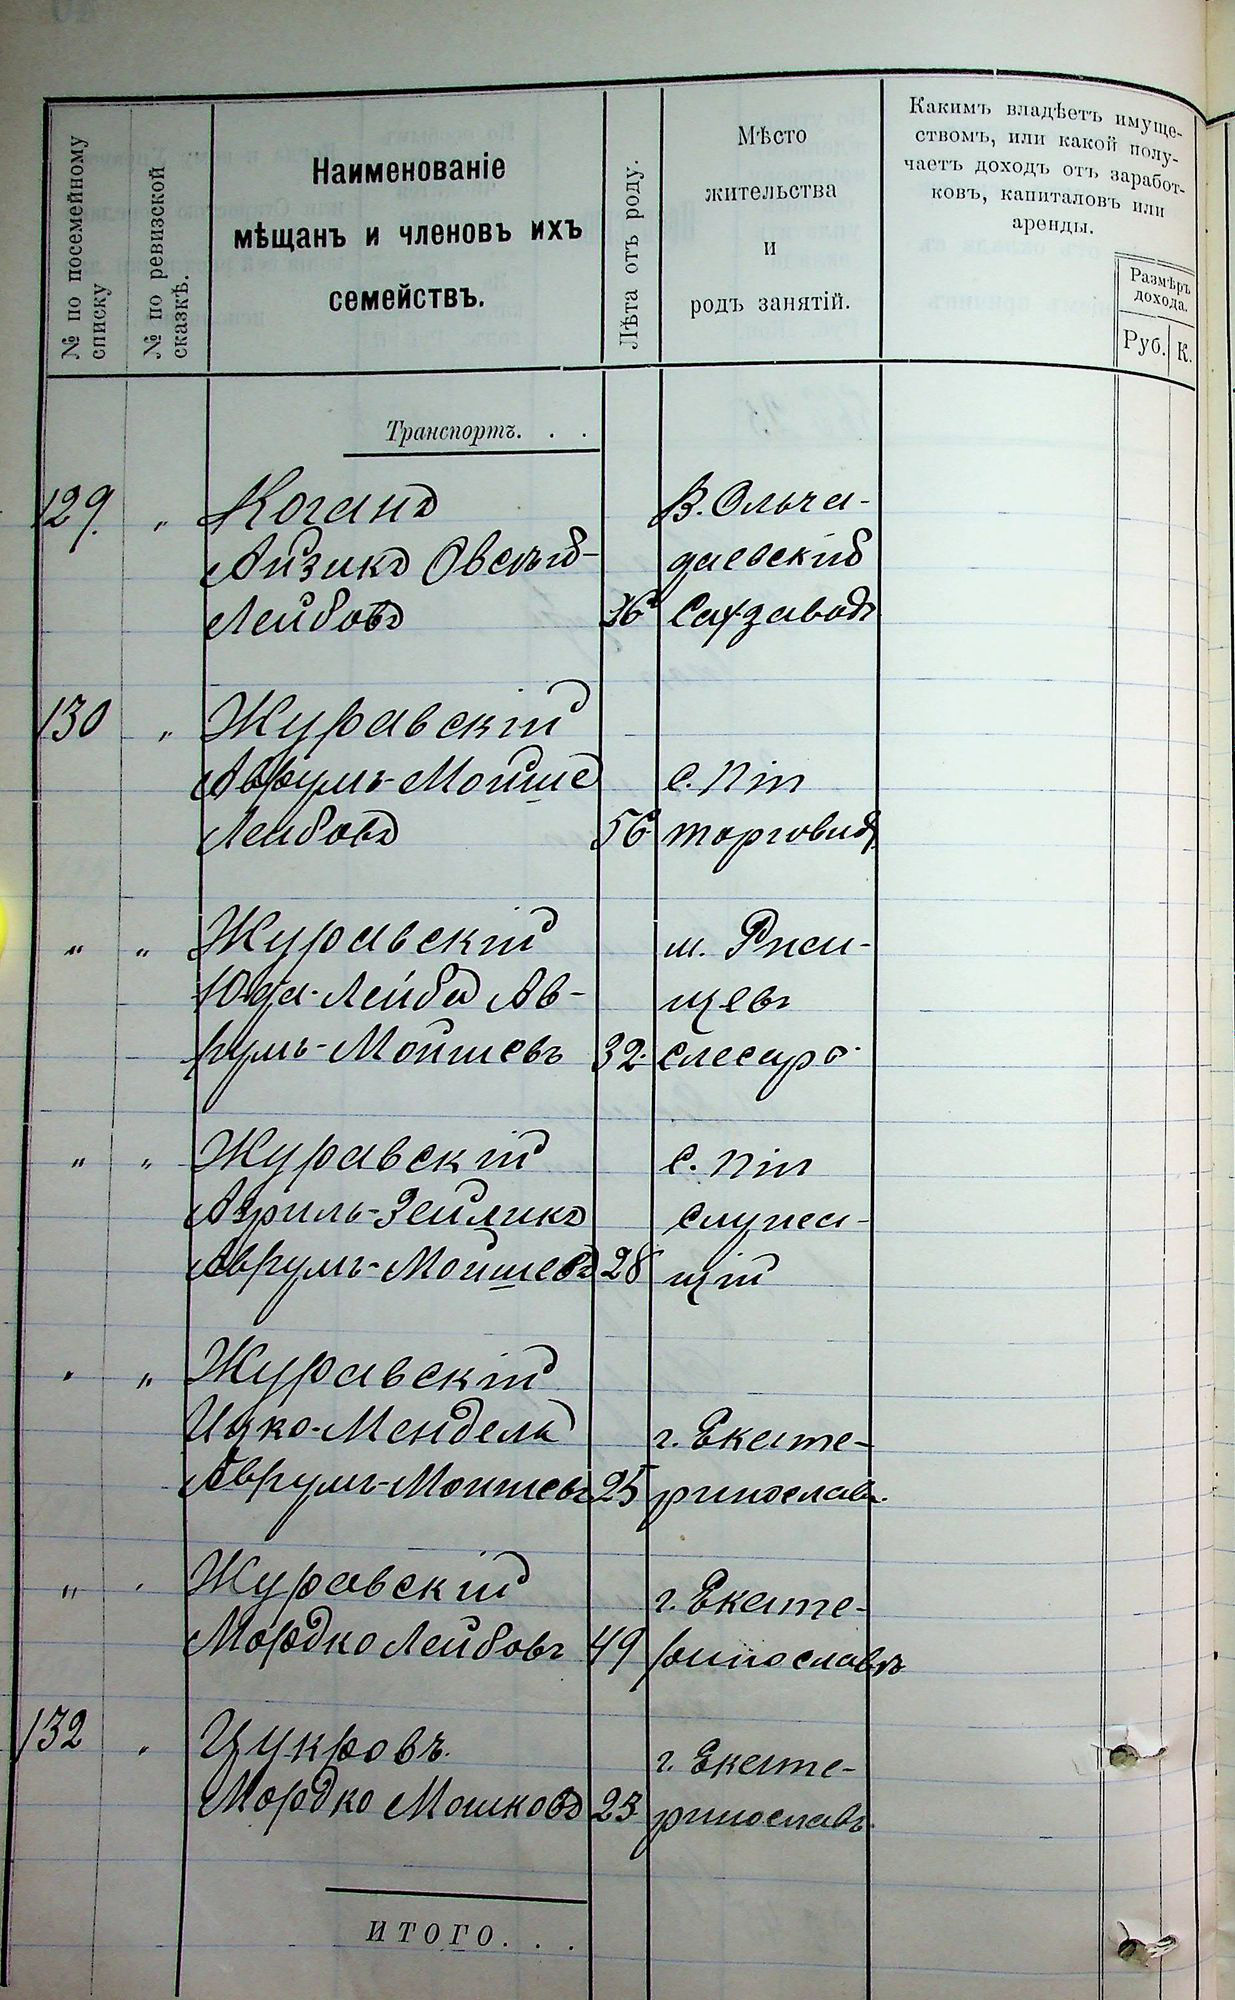 № по посемейному списку
№ по ревизской сказкѣ.
Наименованіе
мѣщанъ и членовъ ихъ
семействъ.
Лѣта отъ роду.
Мѣсто
жительства
и
родъ занятій.
Какимъ владѣетъ имуще-
ствомъ, или какой полу-
чаетъ доходъ отъ заработ-
ковъ, капиталовъ или
аренды.
Размѣръ
дохода.
Руб. К.
Транспортъ. . .
129. " Коганъ В. Ольча-
Айзикъ Овсѣй- даевскій
Лейбовъ 36 Сахзаводъ
130 " Журавскій
Аврумъ-Мойше с.
Лейбовъ 56 торговля
" " Журавскій м. Ржи-
Юда-Лейба Ав- щевъ
румъ-Мойшевъ 32 слесарь
" " Журавскій с.
Азриль-Зейликъ служа-
Аврумъ-Мойшевъ 28 щій
" " Журавскій
Ицко-Мендель г. Екате-
Аврумъ-Мойшевъ 25 ринославъ
" " Журавскій г. Екате-
Мордко Лейбовъ 49 ринославъ
132 " Цукровъ. г. Екате-
Мордко Мошковъ 23 ринославъ
ИТОГО. . .